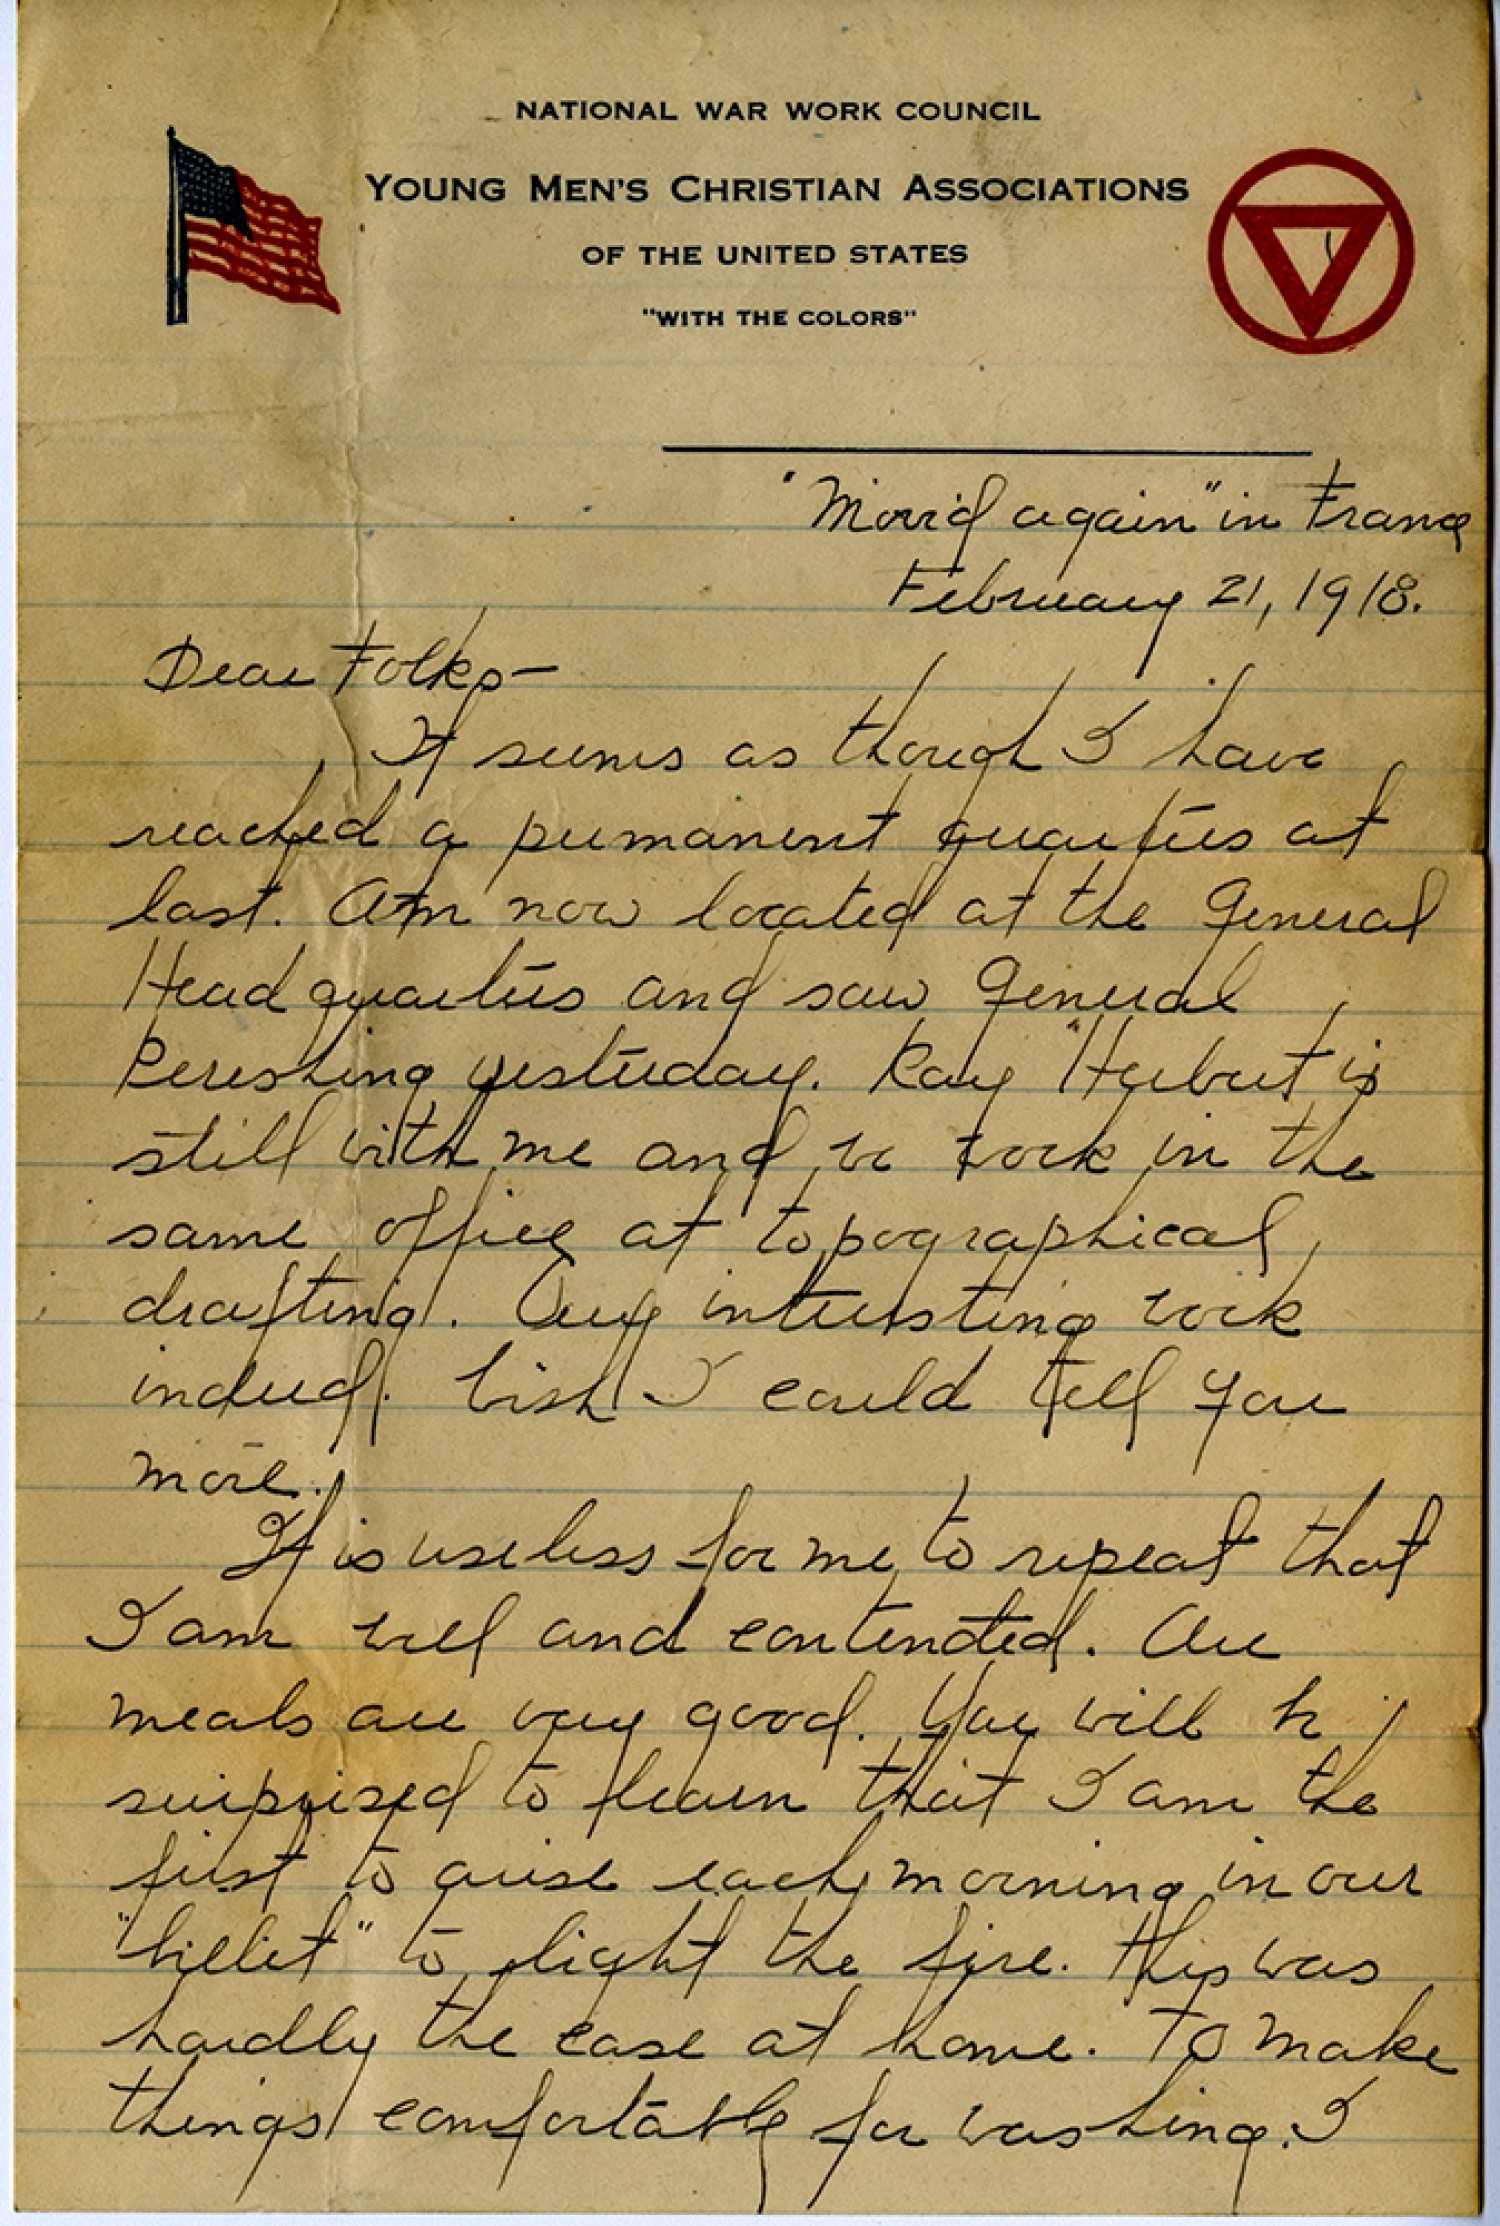 NATIONAL WAR WORK COUNCIL
YOUNG MEN'S CHRISTIAN ASSOCIATIONS
OF THE UNITED STATES
"WITH THE COLORS"
"Mov'd again" in France
February 21, 1918.
Dear Folks—
It seems as though I have
reached a permanent quarters at
last. Am now located at the General
Headquarters and saw General
Pereshing yesterday. Ray Herbert is
still with me and we work in the
same office at topographical
drafting. Very interesting work
indeed. Wish I could tell you
more.
It is useless for me to repeat that
I am well and contented. Our
meals are very good. You will be
surprised to learn that I am the
first to arise each morning in our
"billet" to light the fire. This was
hardly the case at home. To make
things comfortable for washing. I